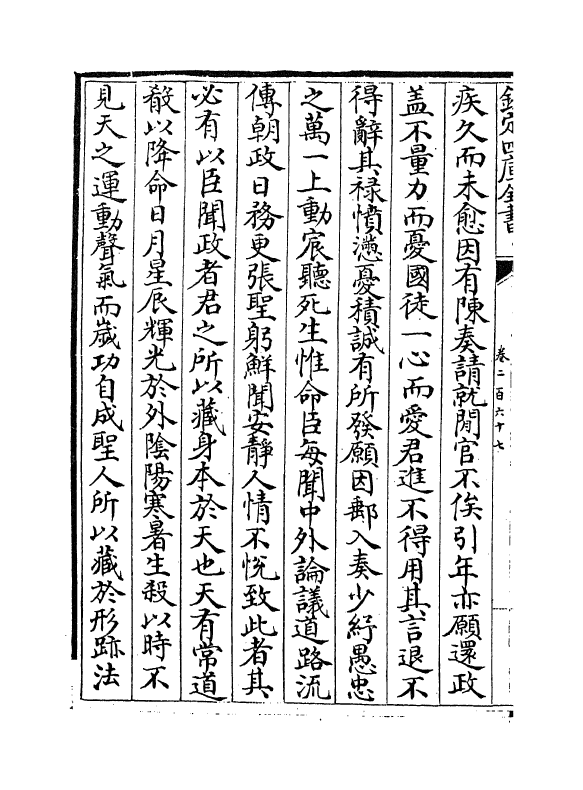 欽定四庫全書
卷二百六十七
疾久而未愈因有陳奏請就閒官不俟引年亦願還政
盖不量力而憂國徒一心而愛君進不得用其言退不
得辭其禄憤懣憂積誠有所發願因郵入奏少紓愚忠
之萬一上動宸聽死生惟命臣每聞中外論議道路流
傳朝政日務更張聖躬鮮聞安靜人情不悅致此者其
必有以臣聞政者君之所以藏身本於天也天有常道
殽以降命日月星辰輝光於外陰陽寒暑生殺以時不
見天之運動聲氣而歲功自成聖人所以藏於形跡法